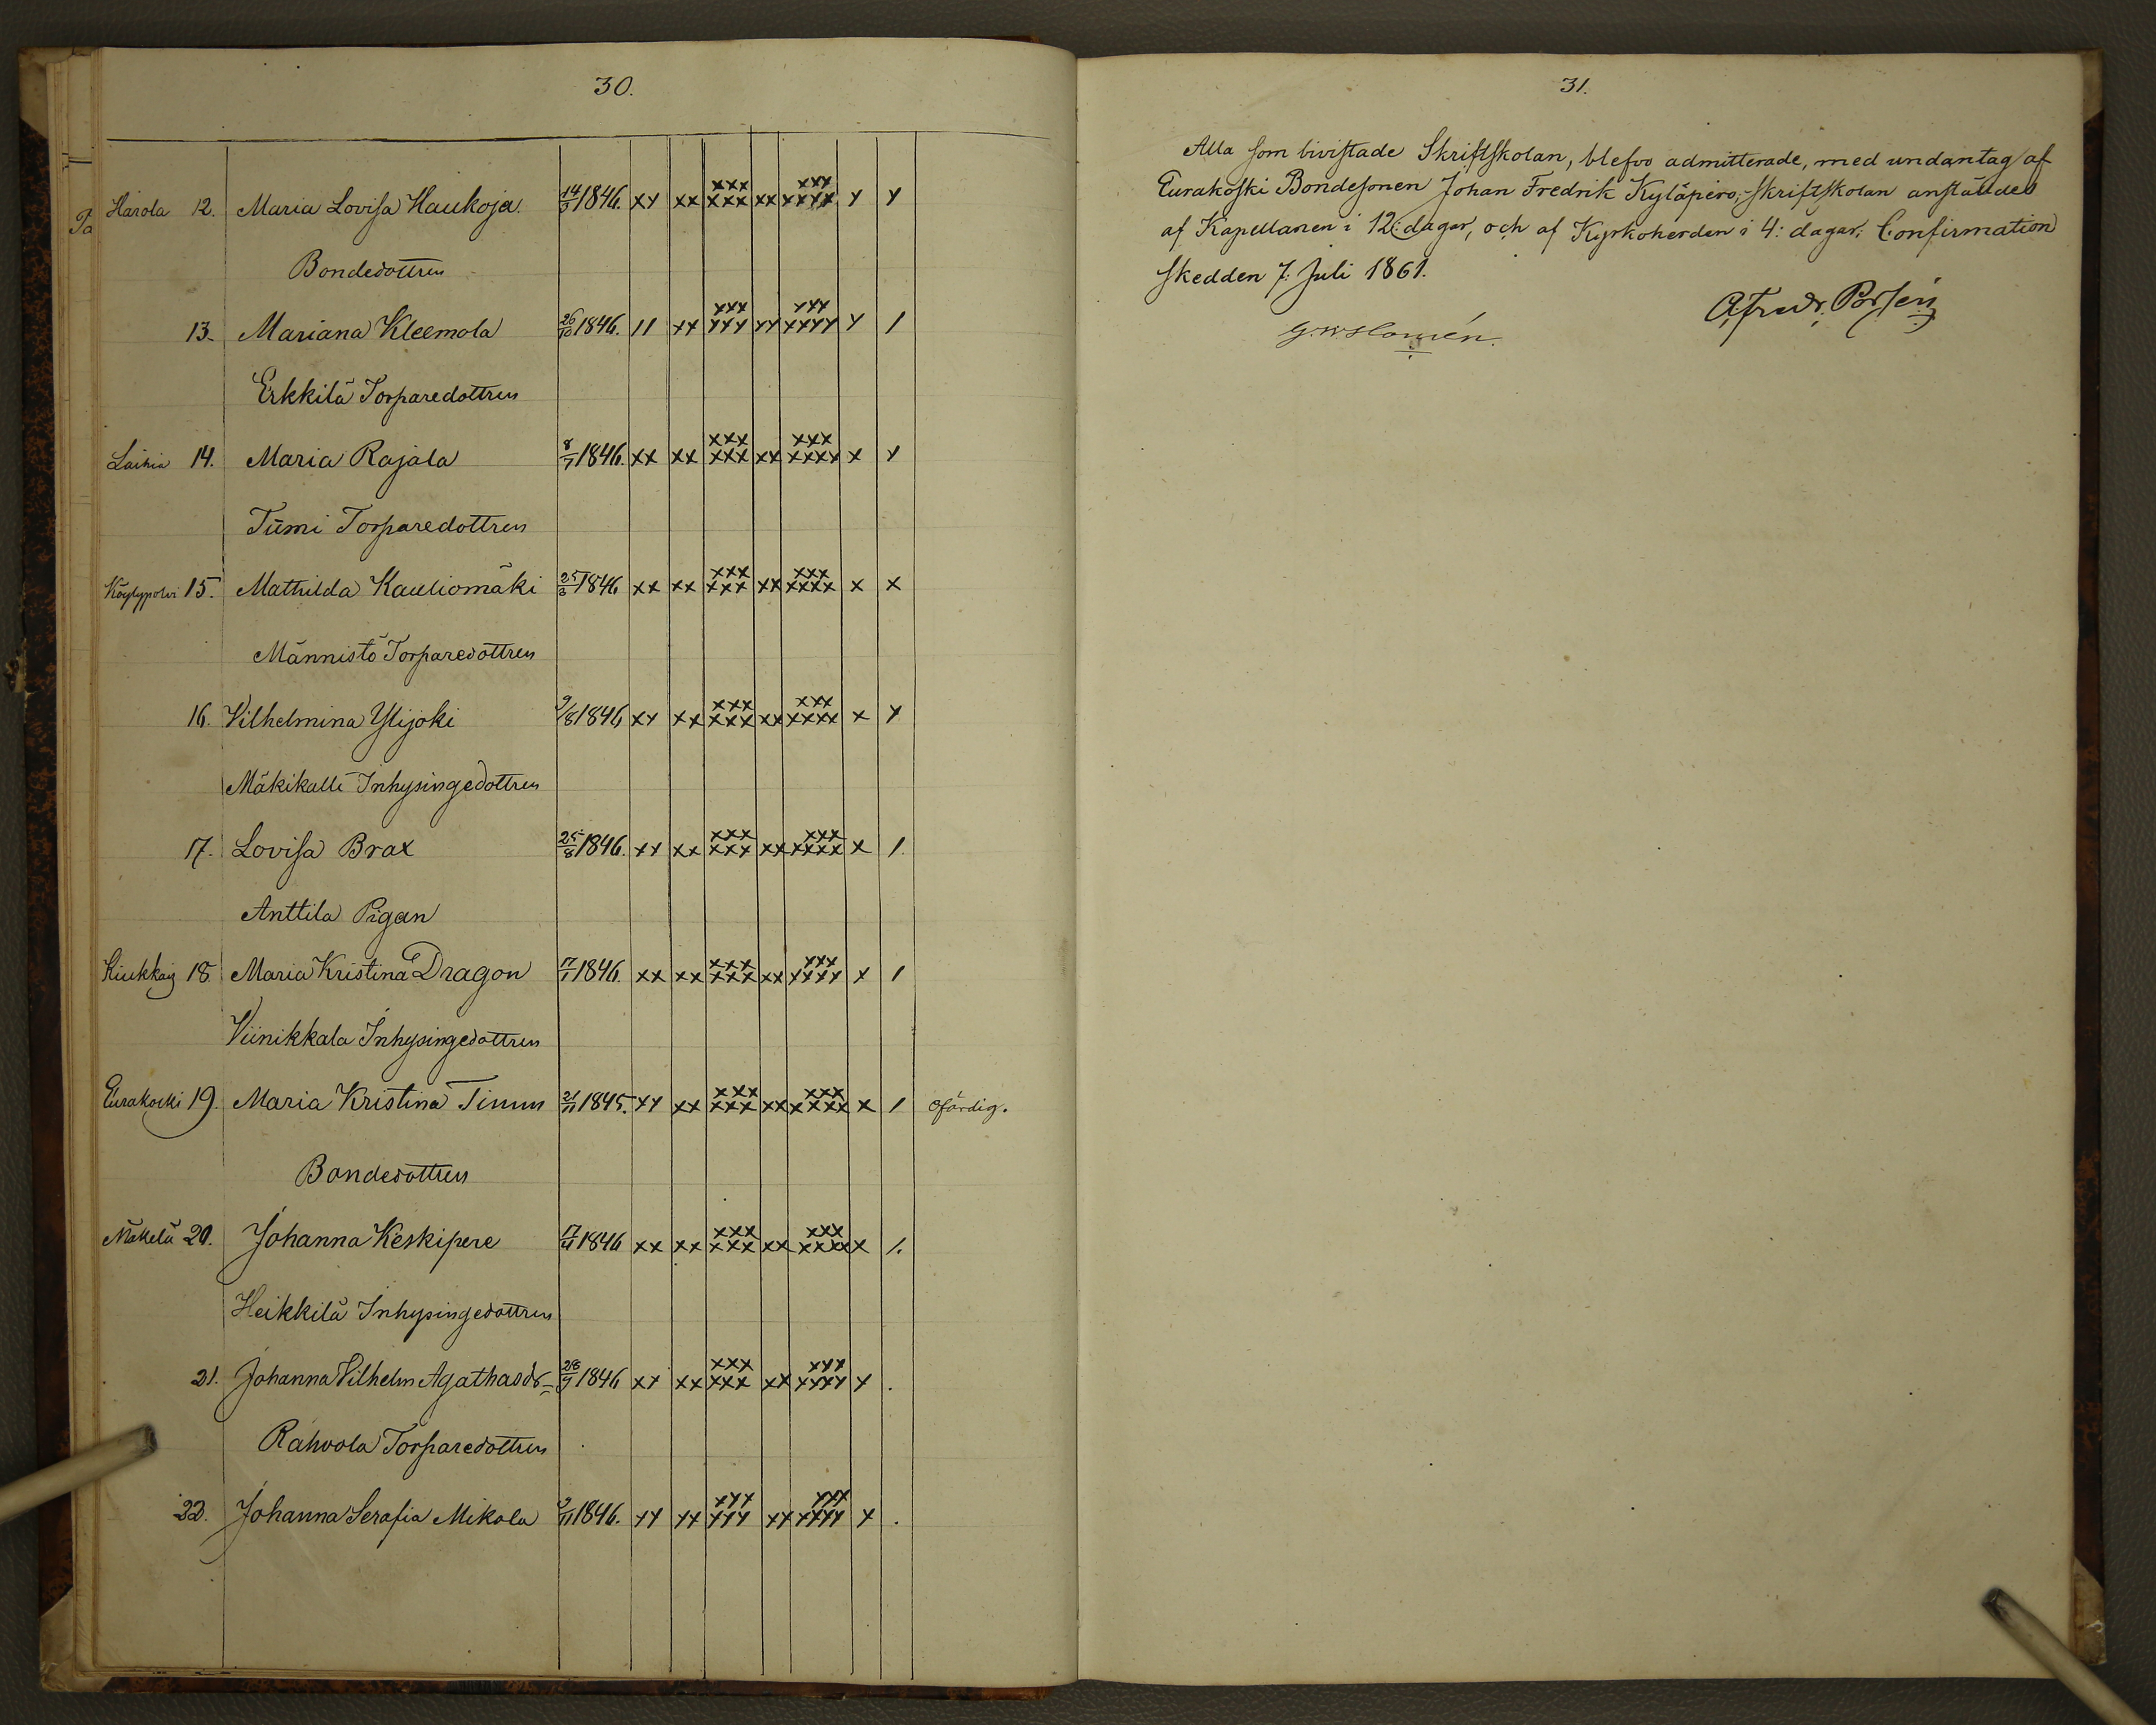 30.
Harola 12. Maria Lovisa Haukoja. 14/9 1846. xx xx xxx xxx xx xxx xxxx x x
Bondedottren
13. Mariana Kleemola 26/10 1846. 11 xx xxx xxx xx xxx xxxx x /
Erkkilä Torparedottren
14. Maria Rajala 8/7 1846. xx xx xxx xxx xx xxx xxxx x x
Tümi Torparedottren
Köylypolvi 15. Mathilda Kauliomäki 25/3 1846 xx xx xxx xxx xx xxx xxxx x x
Männistö Torparedottren
16. Vilhelmina Ylijoki 9/8 1846 xx xx xxx xxx xx xxx xxxx x x
Mäkikalli Inhysingedottren
17. Lovisa Brax 25/8 1846. xx xx xxx xxx xx xxx xxxx x /
Anttila Pigan
18. Maria Kristina Dragon 17/1 1846. xx xx xxx xxx xx xxx xxxx x /
Viinikkala Inhysingedottren
Eurakoski 19. Maria Kristina 21/11 1845. xx xx xxx xxx xx xxx xxxx x / ofärdig.
Bondedottren
Mäkelä 20. Johanna Keskipere 17/4 1846 xx xx xxx xxx xx xxx xxxx x /.
Heikkilä Inhysingedottren
21. Johanna Vilhelm Agathasdr 28/9 1846 xx xx xxx xxx xx xxx xxxx x .
Rahvola Torparedottren
22. Johanna Serafia Mikola 9/11 1846. xx xx xxx xxx xx xxx xxxx x .
31.
Alla som bivistade Skriftskolan, blefvo admitterade, med undantag af
Eurakoski Bondesonen Johan Fredrik Kyläpero; Skriftskolan anställdes
af Kapellanen i 12: dagar, och af Kyrkoherden i 4: dagar; Confirmation
skedde den 7: Juli 1861.
A. Fredr. Porsén